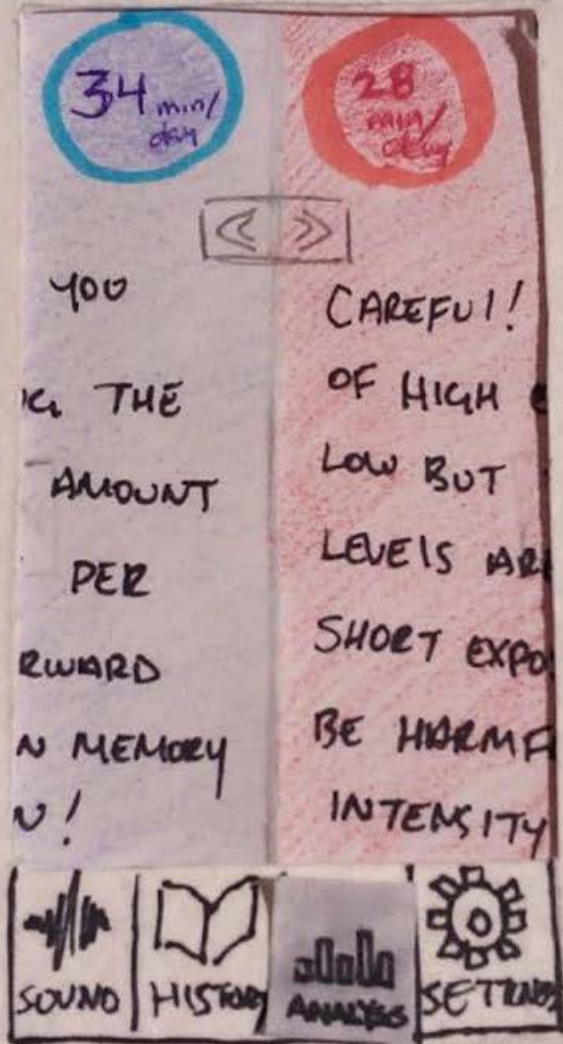 34 min/
day
28
min/
day
<< >>
YOU
G THE
AMOUNT
PER
RWARD
N MEMORY
N!
CAREFUl!
OF HIGH
LOW BUT
LEVElS AR
SHORT EXPO
BE HARMF
INTENSITY
SOUND
HISTORY
ANALYSIS
SETTINGS